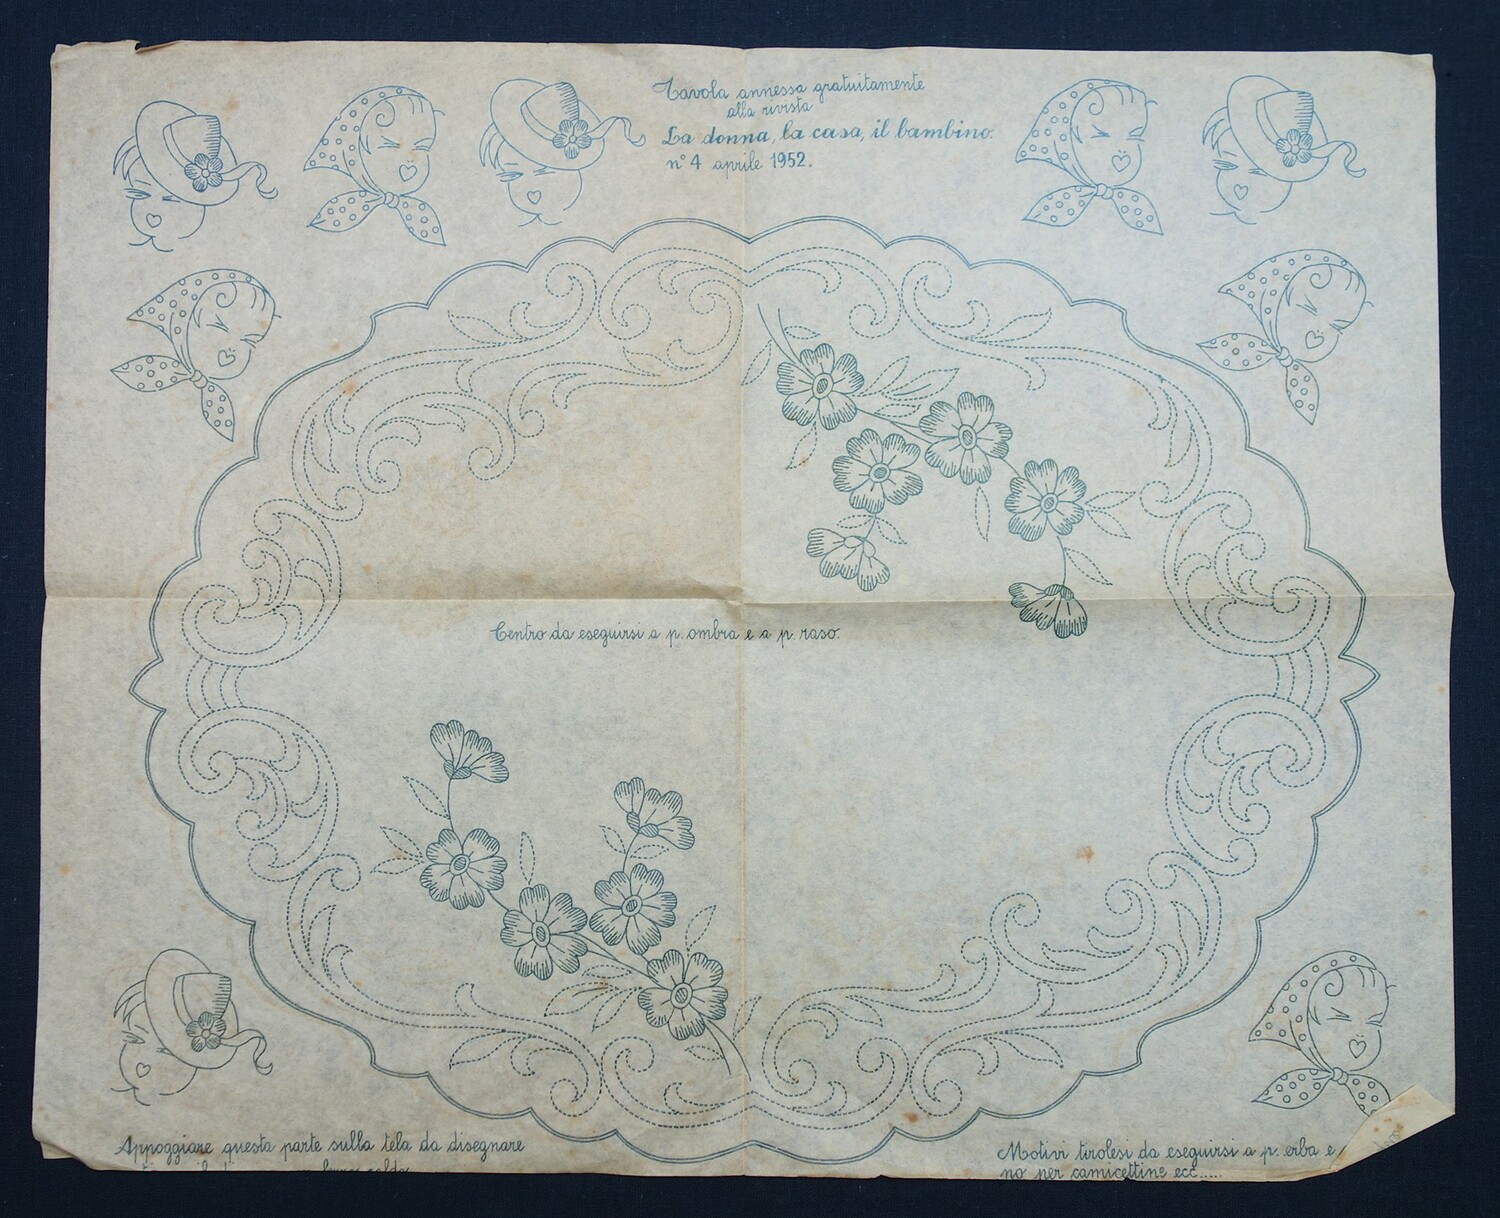 Tavola annessa gratuitamente
alla rivista
La donna, la casa, il bambino.
n° 4 aprile 1952.
Centro da eseguirsi a p. ombra e a p. raso.
Appoggiare questa parte sulla tela da disegnare
Motivi tirolesi da eseguirsi a p. erba e
no per camicettine ecc.....